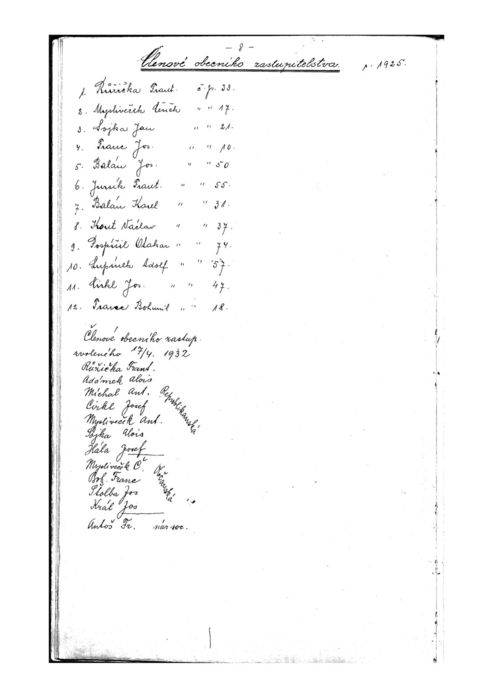 - 8 -
Členové obecního zastupitelstva. r. 1925.
1. Růžička Frant. č.p. 33.
2. Mysliveček " " 17.
3. Sojka Jan " " 21.
4. Franc Jos. " " 10.
5. Balán Jos. " " 50
6. Frant. " " 55.
7. Balán Karel " " 31.
8. Kout Václav " " 37.
9. Pospíšil Otakar " " 74.
10. Lupínek Adolf " " 57.
11. Cirkl Jos. " " 47.
12. Franc Bohumil " " 18.
Členové obecního zastup.
zvoleného 17/4. 1932
Růžička Frant.
Adámek Alois
Míchal Ant.
Cirkl Josef
Mysliveček Ant.
Sojka Alois
Hála Josef
Republikánská
Mysliveček Č.
Boh. Franc
Štolba Jos
Král Jos
Antoš Fr. nár soc.